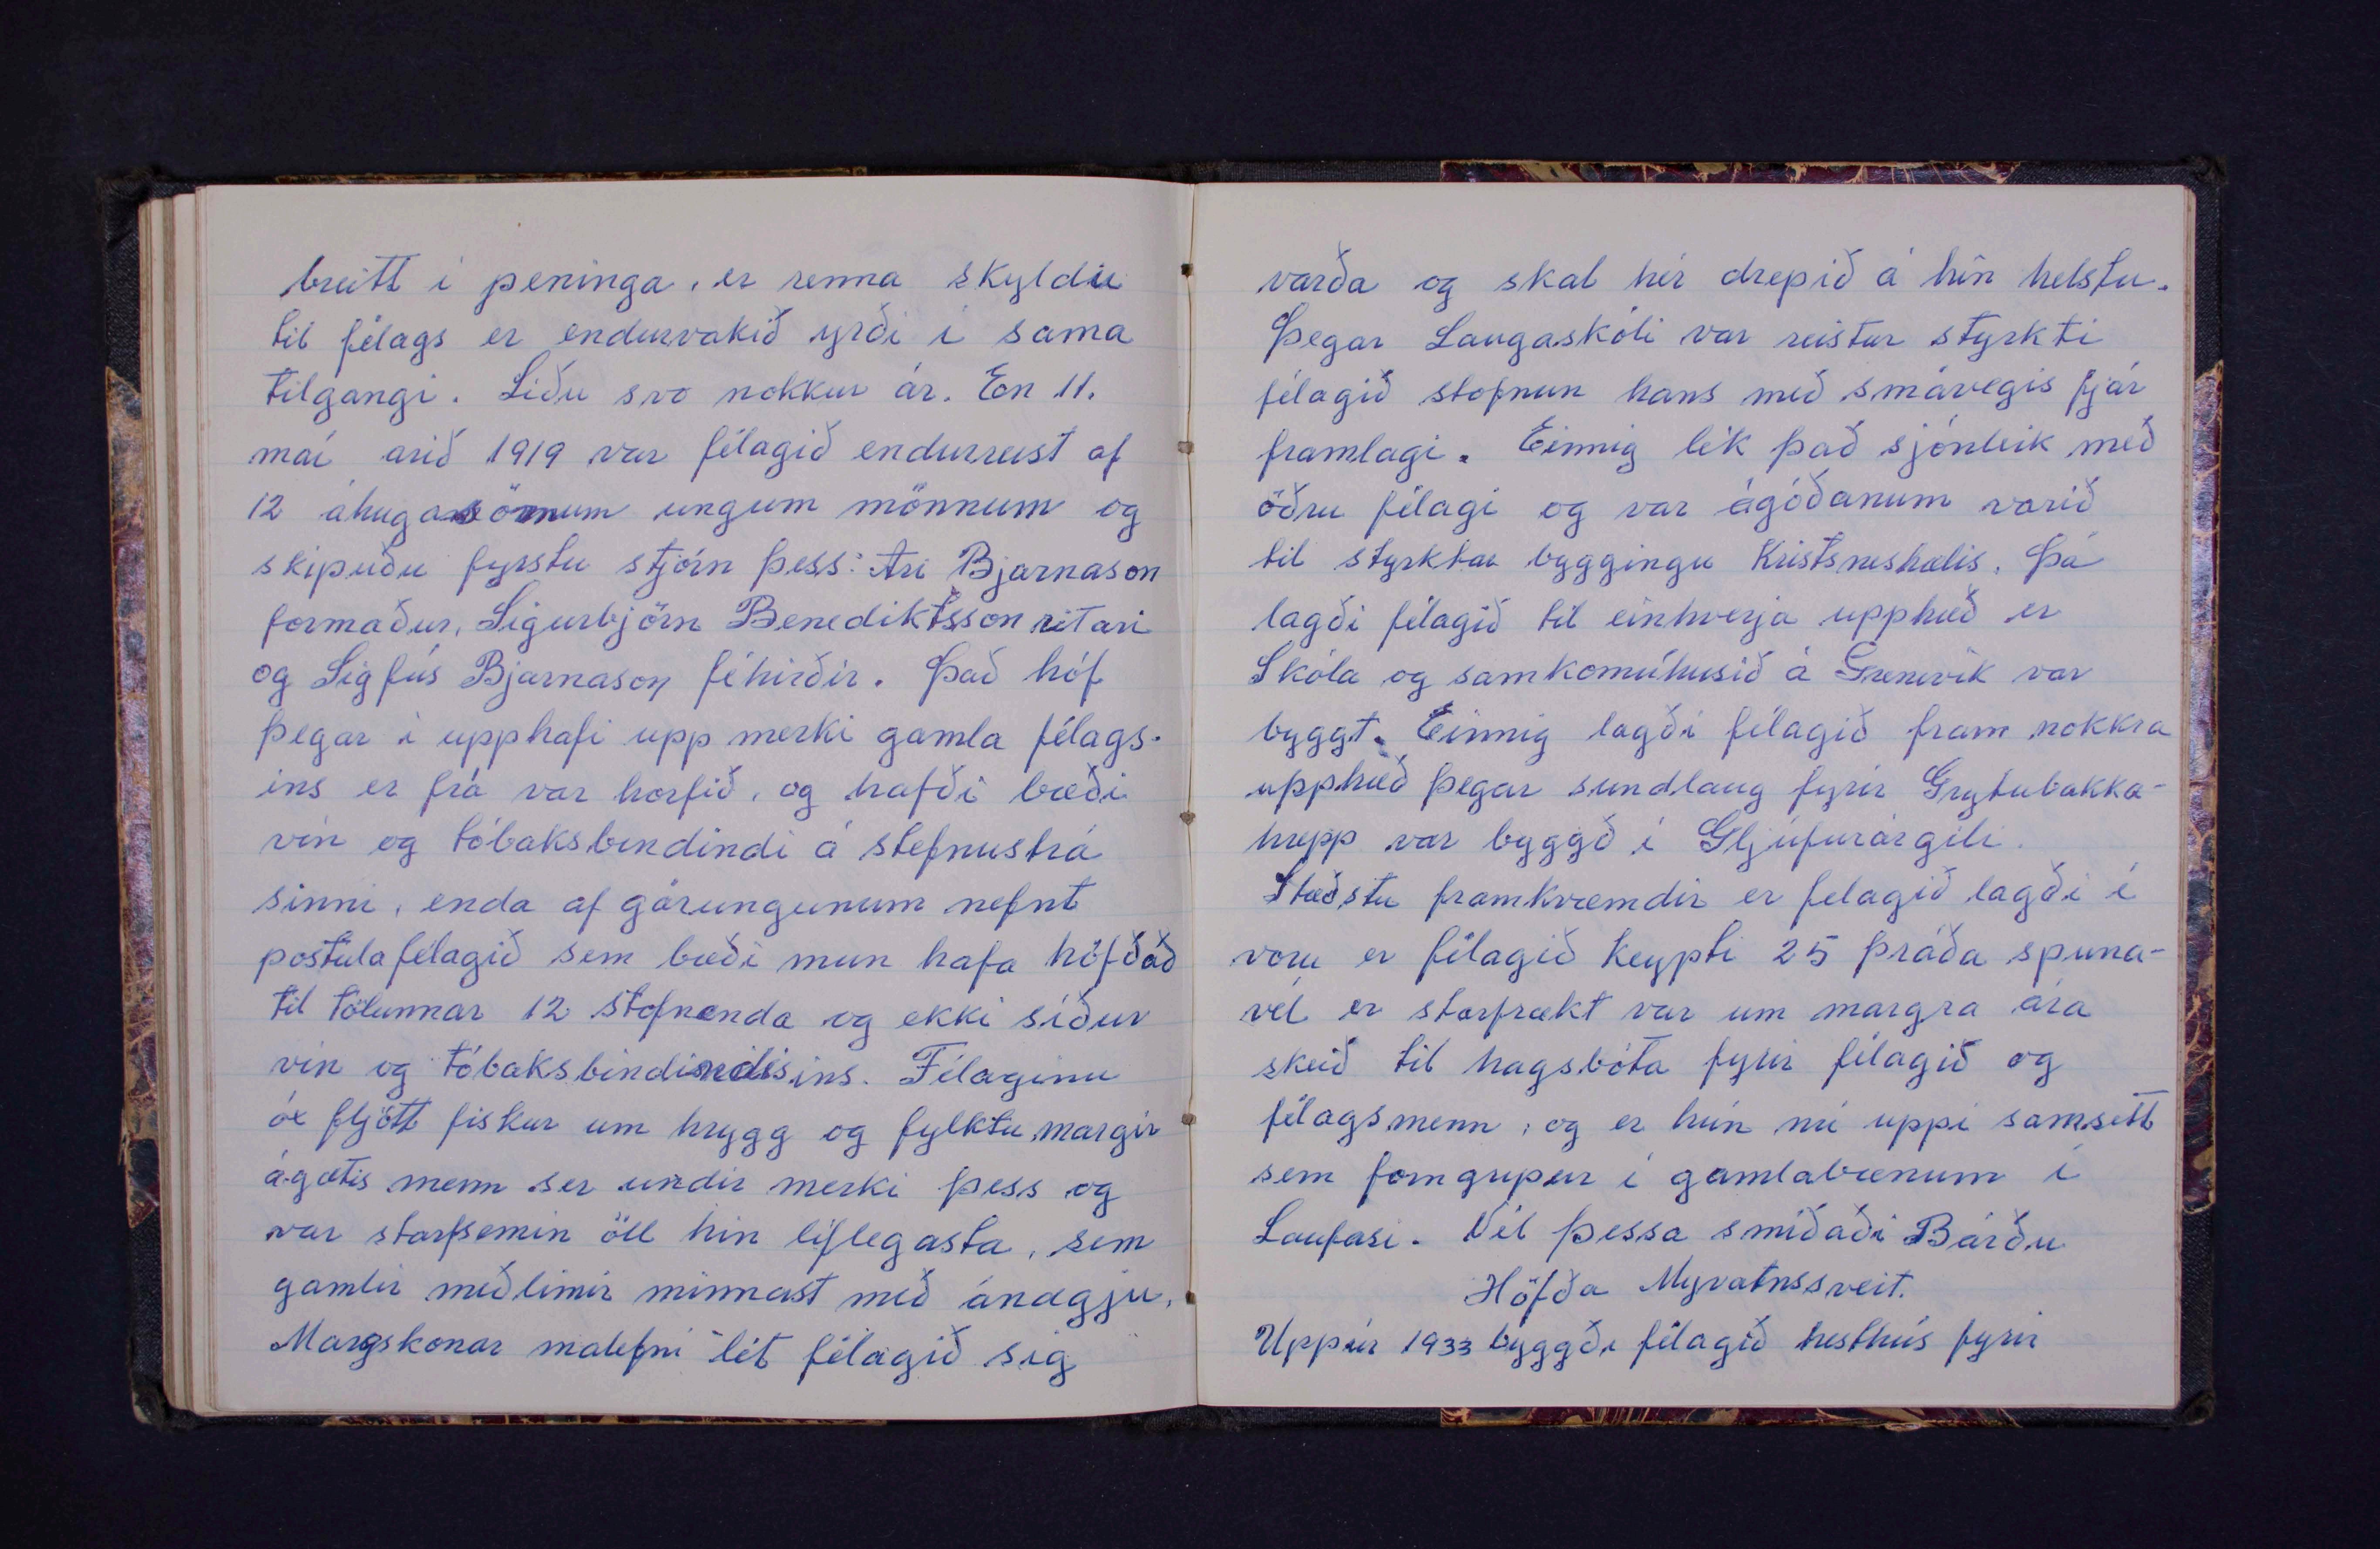 breitt í peninga, er renna skyldu
til félags er endurvakið yrði í sama
tilgangi. Liðu svo nokkur ár. En 11.
maí arið 1919 var félagið endurreist af
12 áhugasömum ungum mönnum og
skipuðu fyrstu stjórn þess: Ari Bjarnason
formaður, Sigurbjörn Benediktsson ritari
og Sigfús Bjarnason féhirðir. Það hóf
þegar í upphafi upp merki gamla félags-
ins er frá var horfið, og hafði bæði
vín og tóbaksbendindi á stefnustrá
sinni, enda af gárungunum nefnt
postulafélagið sem bæði mun hafa höfðað
til tölunnar 12 stofnenda og ekki síður
vín og tóbaksbindindisins. Félaginu
óx fljótt fiskur um hrygg og fylktu margir
ágætis menn ser undir merki þess og
var starfsemin öll hin líflegasta, sem
gamlir meðlimir minnast með ánægju.
Margskonar malefni lét félagið sig
varða og skal hér drepið á hin helstu.
Þegar Laugaskóli var reistur styrkti
félagið stofnun hans með smávegis fjár
framlagi. Einnig lék það sjónleik með
öðru félagi og var ágóðanum varið
til styrktar byggingu Kristsneshælis. Þá
lagði félagið til einhverja upphæð er
Skóla og samkomúhusið á Grenivík var
byggt. Einnig lagði félagið fram nokkra
upphæð þegar sundlaug fyrir Grytubakka-
hrepp var byggð í Gljúfurárgili.
Stæðstu framkvæmdir er felagið lagði í
voru er félagið keypti 25 þráða spuna-
vél er starfrækt var um margra ára
skeið til hagsbóta fyrir félagið og
félagsmenn, og er hún nú uppi samsett
sem forngripur í gamlabænum í
Laufasi. Vél þessa smíðaði Bárðu
Höfða Myvatnssveit.
Uppúr 1933 byggði félagið hesthús fyrir